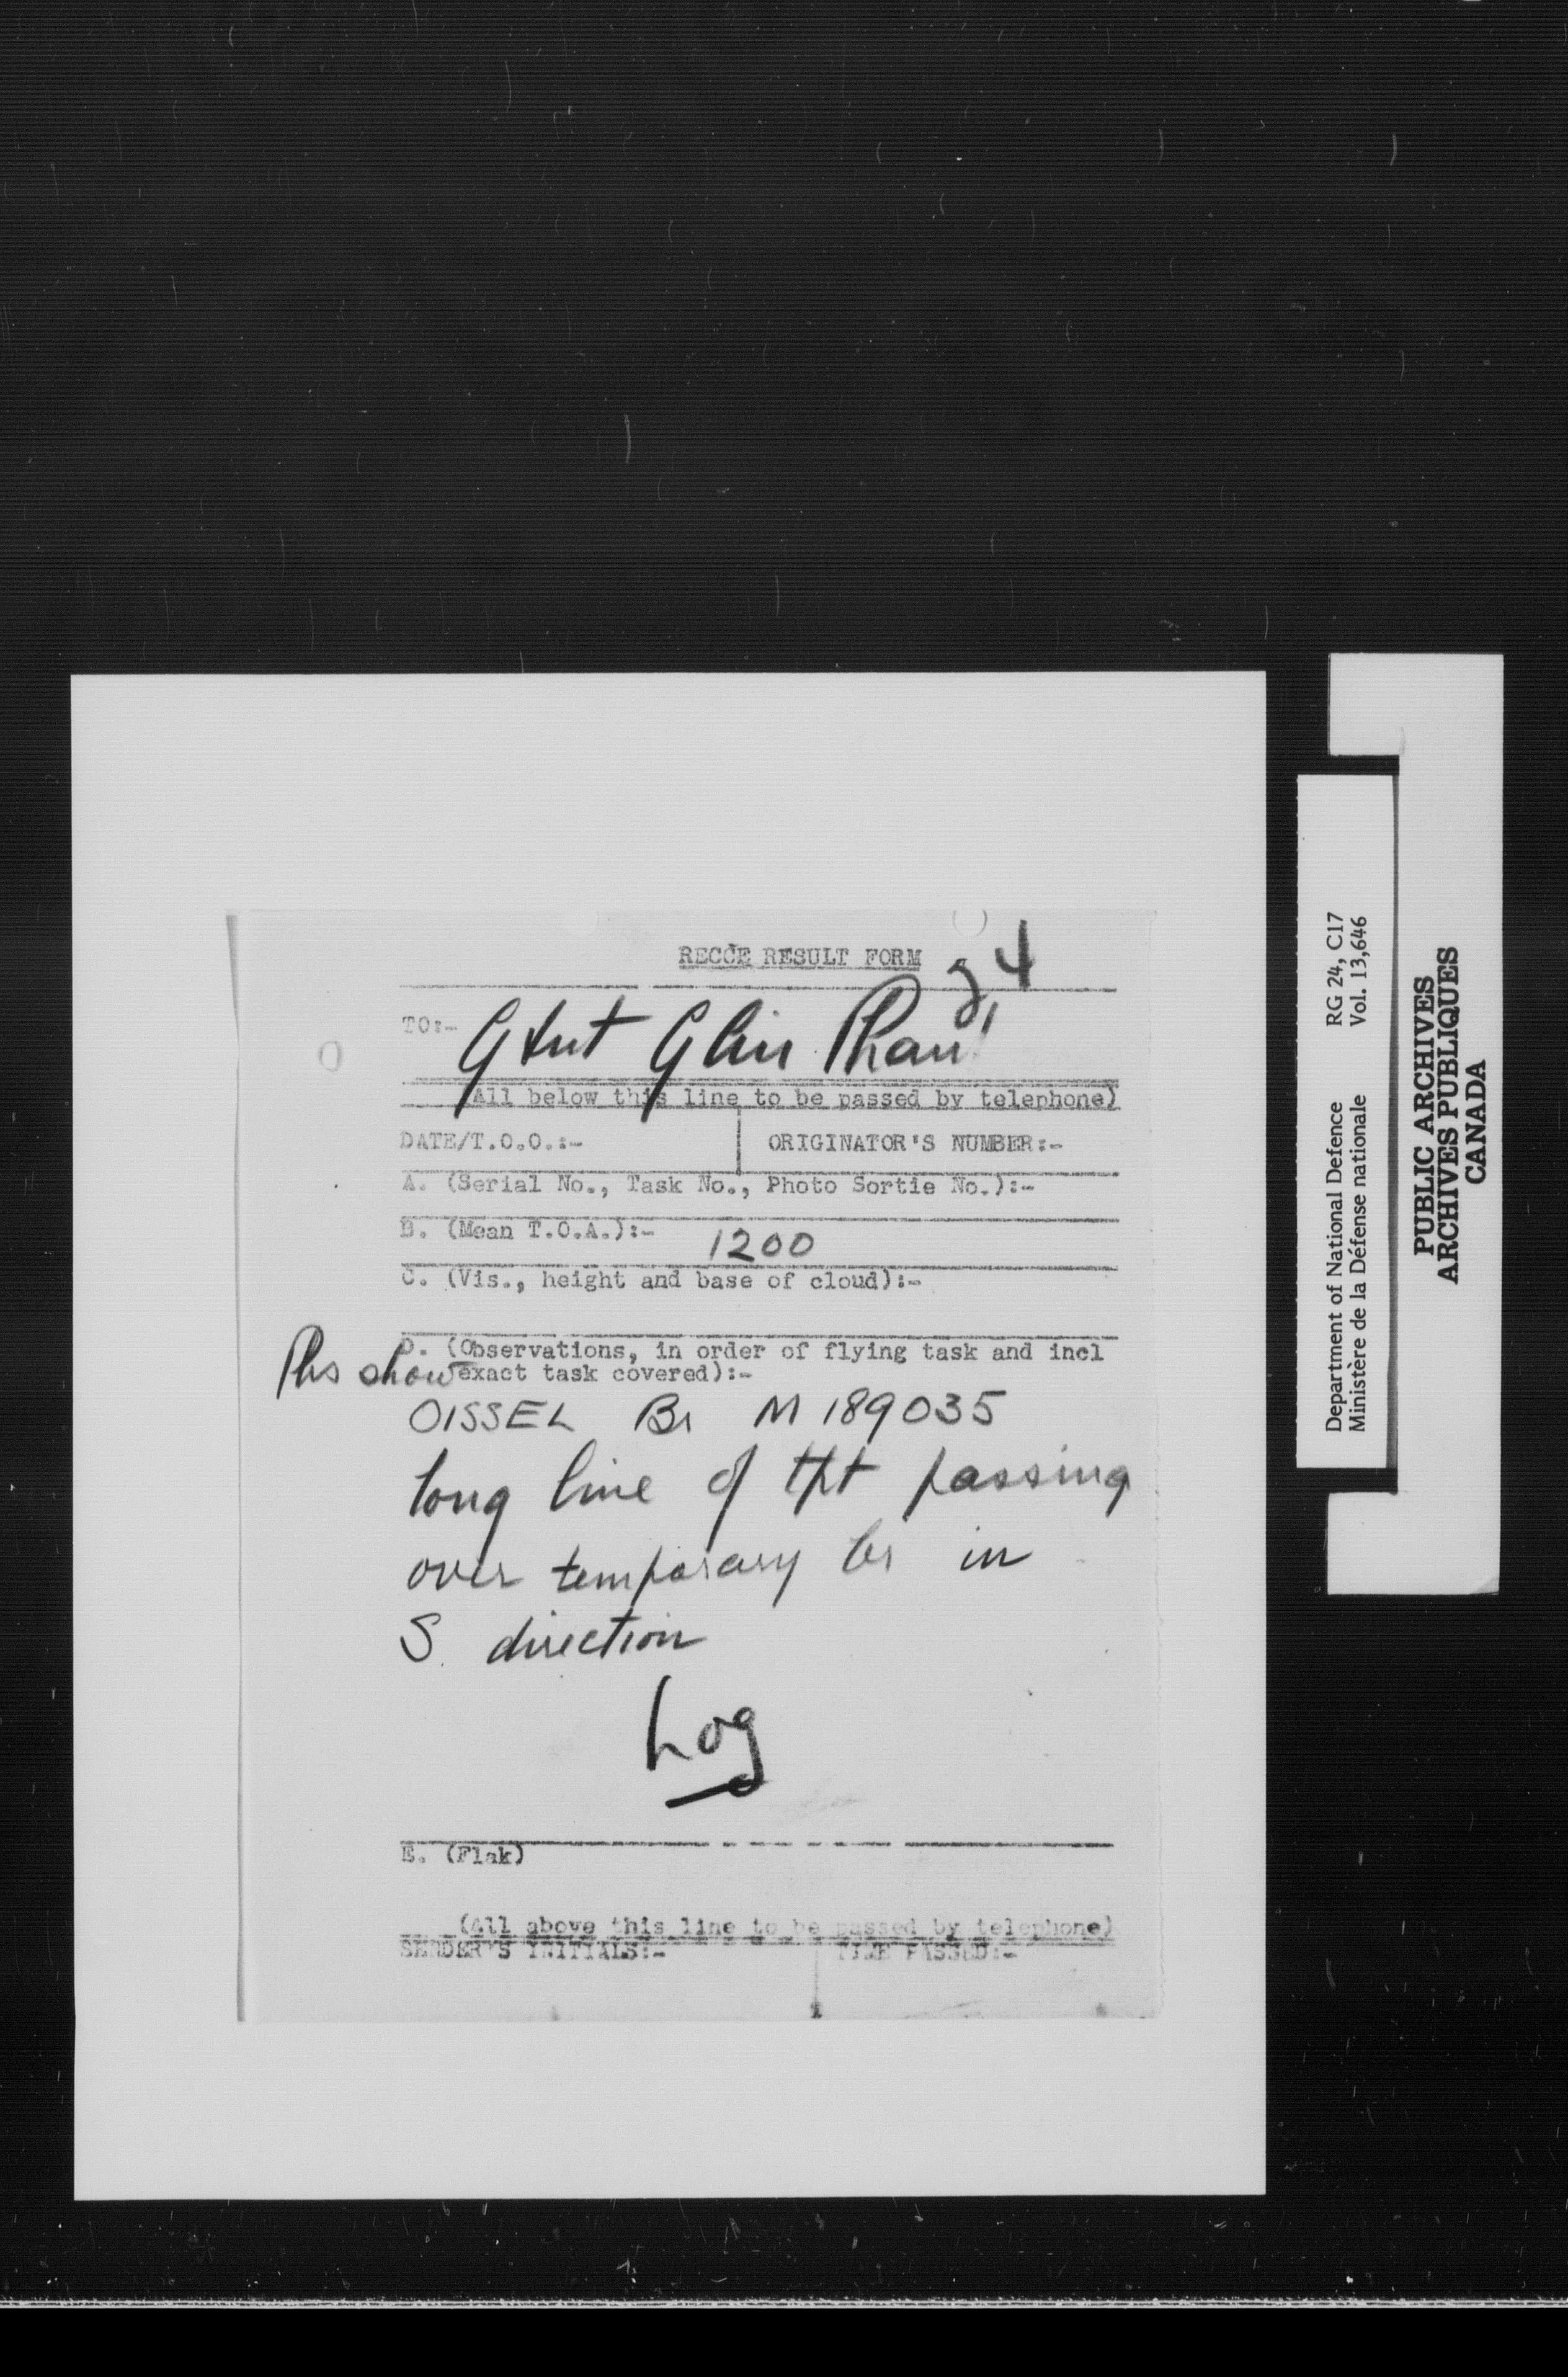 RECCE RESULT FORM
34
TO:- G Int G Air Phan
(All below this line to be passed by telephone)
DATE/T.O.O.:- ORIGINATOR'S NUMBER:-
A. (Serial No., Task No., Photo Sortie No.):-
B. (Mean T.O.A.):- 1200
C. (Vis., height and base of cloud):-
D. (Observations, in order of flying task and incl
exact task covered):-
Phs show
OISSEL Br M 189035
long line of tpt passing
over temporary br in
S direction
Log
E. (Flak)
(All above this line to be passed by telephone)
SENDER'S INITIALS:- TIME PASSED:-
Department of National Defence RG 24, C17
Ministère de la Défense nationale Vol. 13,646
PUBLIC ARCHIVES
ARCHIVES PUBLIQUES
CANADA